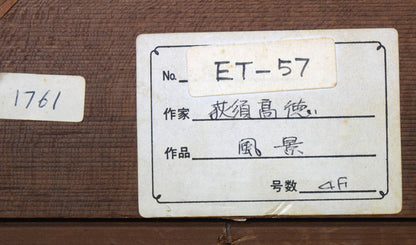 1761
No. ET-57
作家 荻須高徳
作品 風景
号数 4F